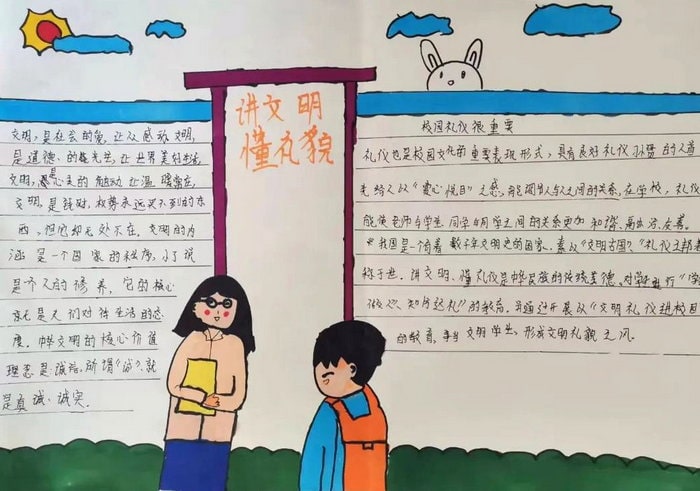 讲文明
懂礼貌
文明,是社会的爱,让人感动,文明,
是道德的曙光,让世界美
文明,是心灵的触动,让温暖
文明,是钱财,权势永远买不到的东
西,但它却无处不在,文明的内
涵是一个国家的秩序,小了说
是个人的修养,它的核心
就是人们对待生活的态
度,中华文明的核心价值
理念是:诚信,所谓《诚》,就
是真诚、诚实.
校园礼仪很重要
礼仪也是校园文化的重要表现形式,具有良好礼仪习惯的人首
先给人以《赏心悦目》之感,能调节人与人之间的关系,在学校,礼仪
能使老师与学生,同学与同学之间的关系更加和谐,融洽,友善。
我国是一个有着数千年文明史的国家,素以《文明古国》《礼仪之邦》
称于世.讲文明、懂礼仪是中华民族的传统美德,对学生进行《学
做人、知行达礼》的教育,普遍开展以《文明礼仪进校园
的教育,争当文明学生,形成文明礼貌之风.